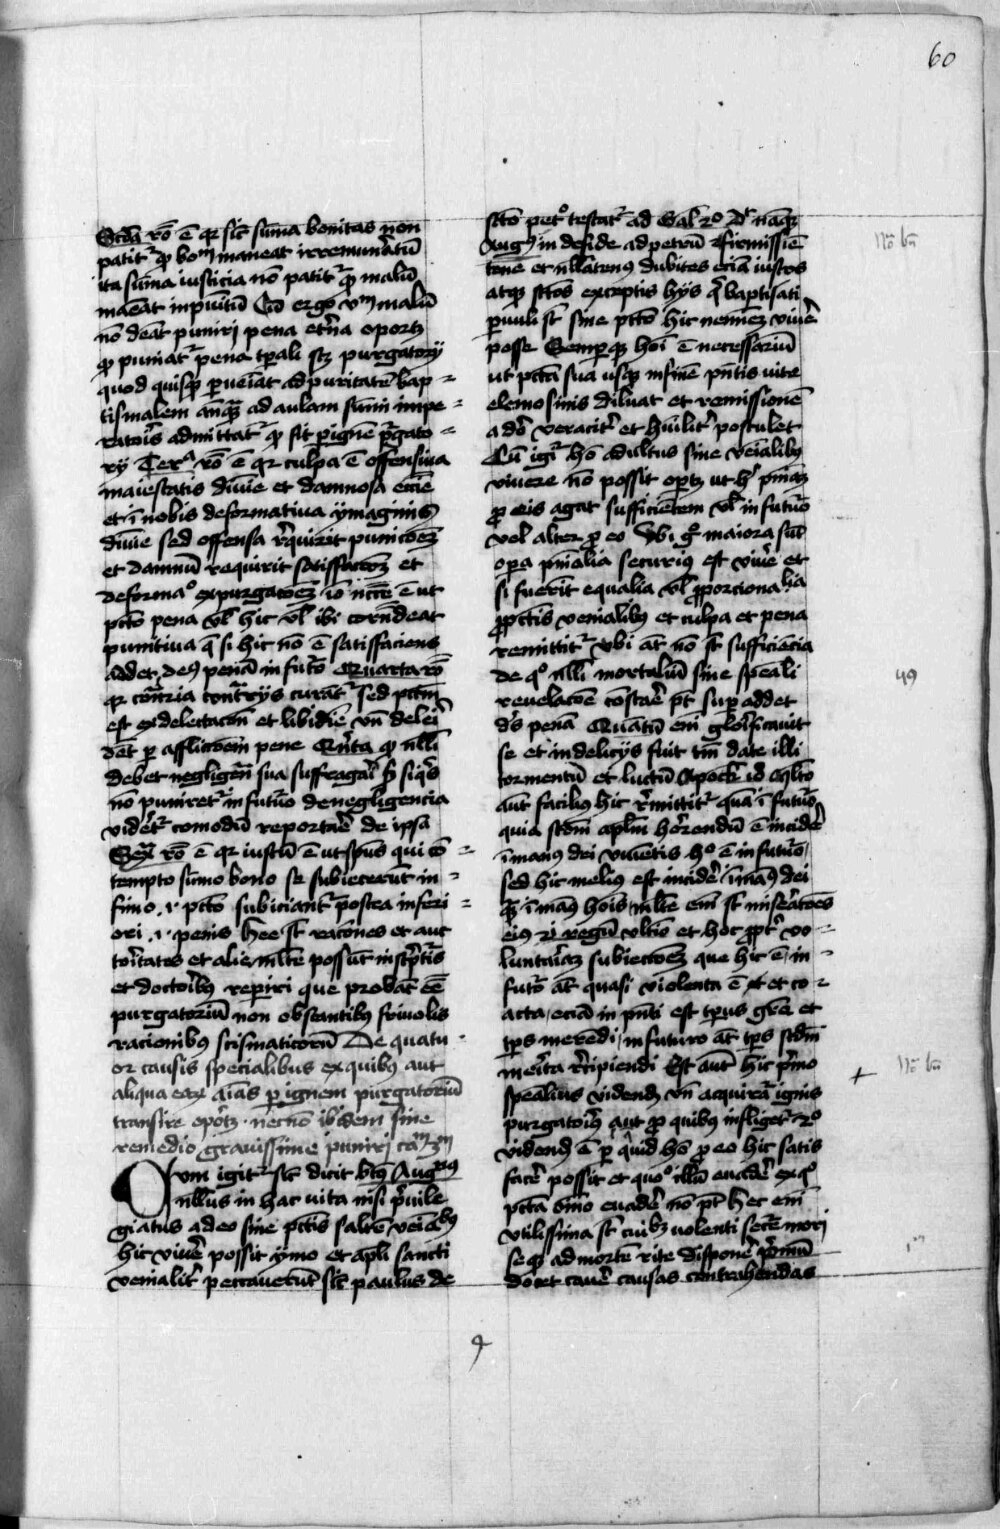 60
Scda rō ē qr sic sūma bonitas non
patitr qd bonm maneat irremunatū
ita sūma iusticia nō patitr qd malū
maēat inpuitū Cū ergo vm malū
nō deat puniri pena etna oportz
qd puniatr pena tpali scz purgatorij
quod quisqz pueiat ad puritatē bap=
tismalem anqz ad aulam sūmi impe=
ratoris admittatr qd fit p ignē pgato=
rij Tera rō ē qr culpa ē offensiua
maiestatis diuie et damnosa eccie
et ī nobis deformatiua ymaginis
diuie sed offensa rquirit punicoez
et damnū requirit satisfactoez et
deformao expurgatoez io necce ē ut
pctō pena vl hic vl ibi corndeat
punitiua q si hic nō ē satisfaciens
addet deus penā in futo Quarta rō
qr contria contrijs curatr sed pctm
est ex delectacon et libidie vn delei
dēt p afflictoem pene Qnta qd nlli
debet negligen sua suffragai si sigs
nō puniretr in futuo de negligencia
videtr comodū reportae de ipsa
Sexta rō ē qr iustū ē ut spus qui cō=
tempto sūmo bono se subiecerūt in=
fimo .i. pctō subiciantr postea inferi=
ori .i. penis hee st racones et auc
toitates et alie mlte possūt in scptis
et doctoibus reperiri que probāt eē
purgatoriū non obstantibus friuolis
racionibus scismaticorū De quatu
or causis specialibus ex quibus aut
aliqua eaz aias p ignem purgatoriū
transire opotz necnō ibidem sine
remedio grauissime puniri
Qvm igitr sic dicit btus Augus
nllus in hac vita nisi puile
giatus adeo sine pctis saltē veialibus
hic viue possit ymo et apli sancti
venialitr peccauerūt sic paulus de
sctō peto testatr ad Gal 2o Dt naqz
Augus in de fide ad petrū Firmissie
tene et nllatenus dubites eciā iustos
atqz sctos exceptis hijs q baptisati
puuli st sine pctō hic neminez viue
posse Semper qz hoi ē necessariū
ut pcta sua usqz in finē pntis vite
elemosinis diluat et remissionē
a deo veracitr et hūilitr postulet
Cū igitr hō adultus sine veialibus
viuere nō possit optz ut h pniaz
p eis agat sufficientem vl in futuo
vel alter p eo Vbi go maiora sūt
opa pnialia securius est viue et
si fuerit equalia vl pporcionalia
pctis venialibus et culpa et pena
remittitr Vbi at nō st sufficiēcia
de qo nlli mortaliū sine speali
reuelacoe costae pt sup addet
ds penā Quātū em glorificauit
se et in delicijs fuit tm date illi
tormentū et luctū Apock
aut facilius hic rmittitr quā ī futuo
quia scdm aplm horendū ē incide
ī manus dei viuētis ho ē in futuo
sed hic melius est incide ī manus dei
qz ī manus hois mlte em st miseratoes
eius et hoc ppt vo=
luntaiaz subiectoez que hic ē in=
futo at quasi violenta ē et co=
acta eciā in pnti est tpus gre et
tps meredi in futuro at tps scdm
meita rcipiendi Est aut hic pmo
spealius videnduz vn acquirat ignis
purgatoius aut p quibus infligetr 2o
videnduz ē p quid hō p eo hic satis
face possit et quo illū euade ex qo
pcta omo euade nō pt hec em
vtilissima st cuibz volenti secure mori
seqz ad mortē rite dispone pmū
docet caue causas contrahendas
49